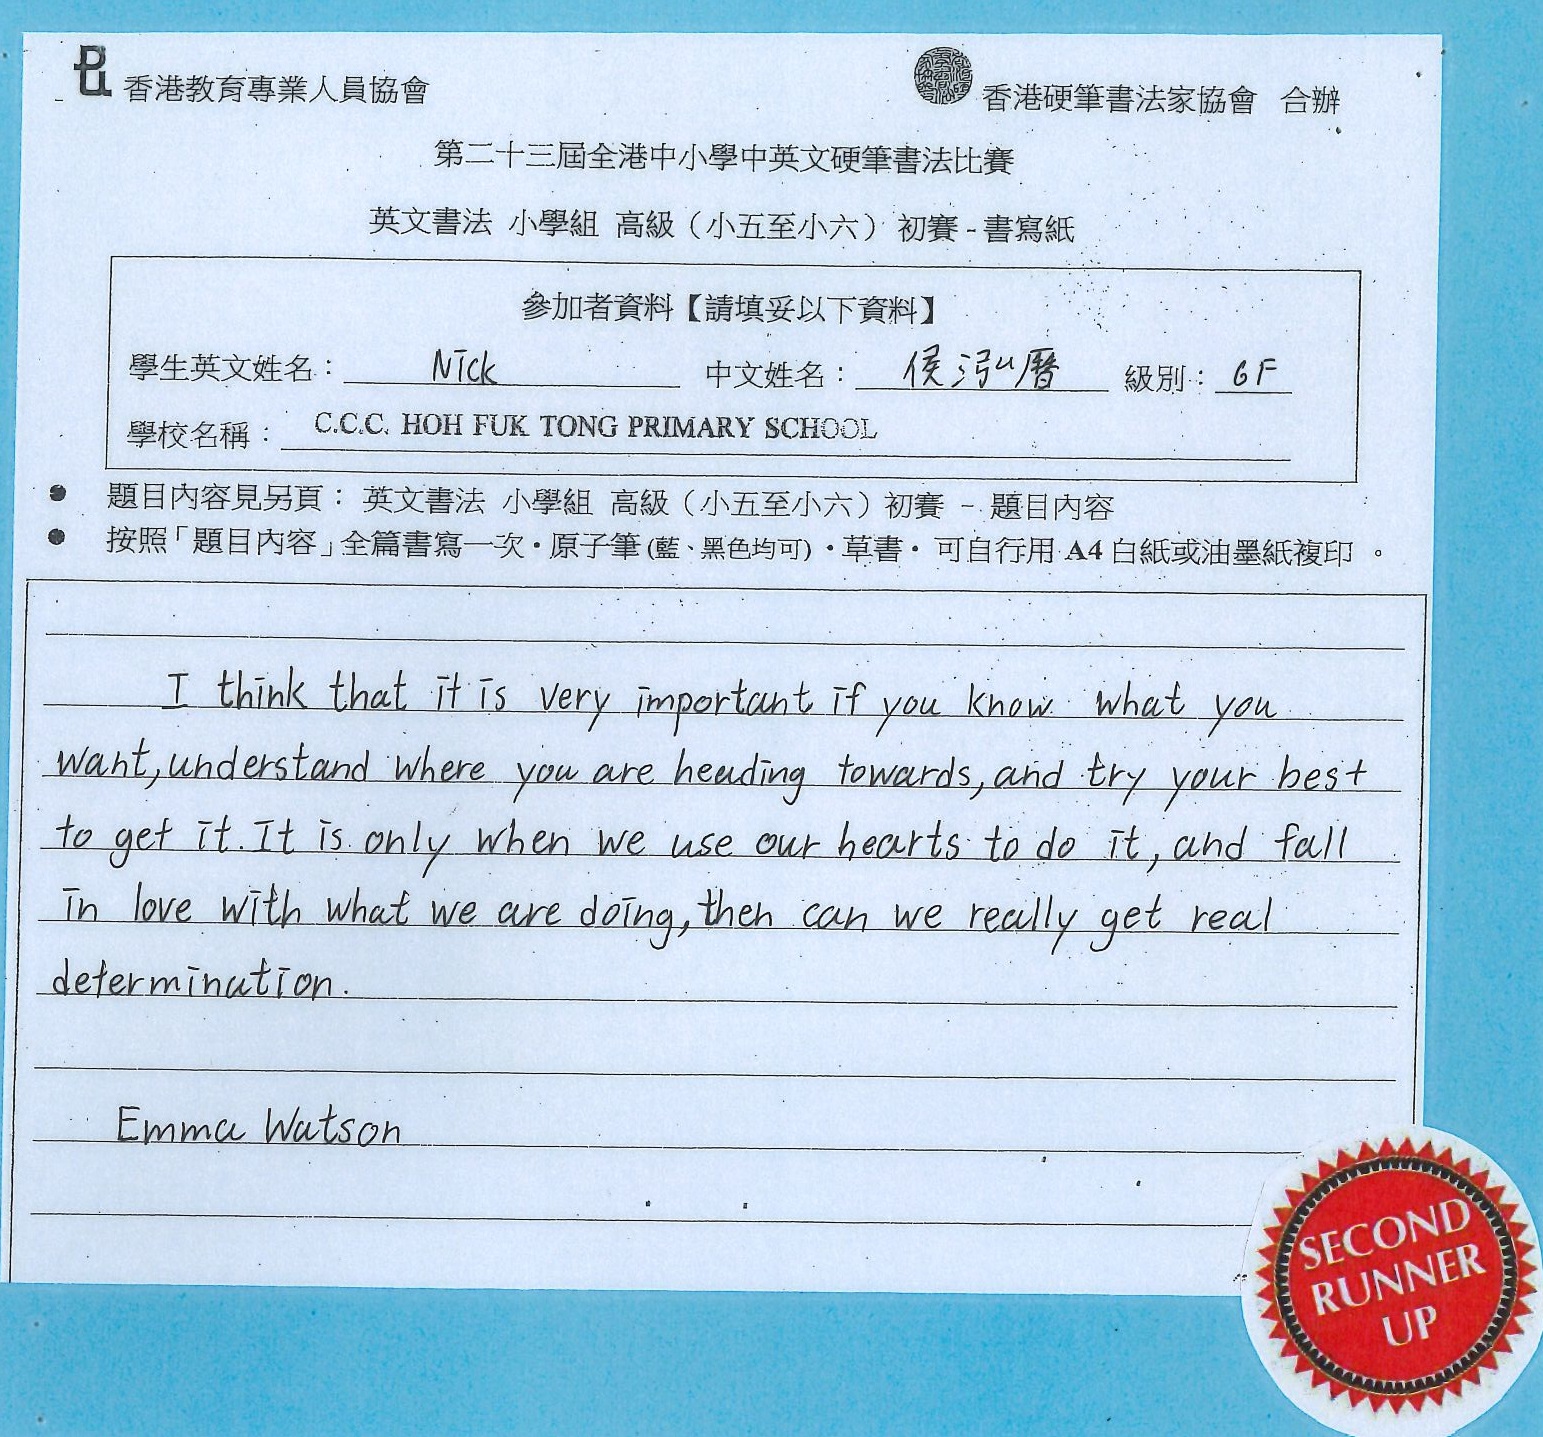 香港教育專業人員協會
香港硬筆書法家協會 合辦
第二十三屆全港中小學中英文硬筆書法比賽
英文書法 小學組 高級（小五至小六）初賽 - 書寫紙
參加者資料【請填妥以下資料】
學生英文姓名： Nick 中文姓名： 侯泓曆 級別： 6F
學校名稱： C.C.C. HOH FUK TONG PRIMARY SCHOOL
● 題目內容見另頁： 英文書法 小學組 高級（小五至小六）初賽 - 題目內容
● 按照「題目內容」全篇書寫一次・原子筆 (藍、黑色均可)・草書・可自行用 A4 白紙或油墨紙複印。
I think that it is very important if you know what you
want, understand where you are heading towards, and try your best
to get it. It is only when we use our hearts to do it, and fall
in love with what we are doing, then can we really get real
determination.
Emma Watson
SECOND
RUNNER
UP